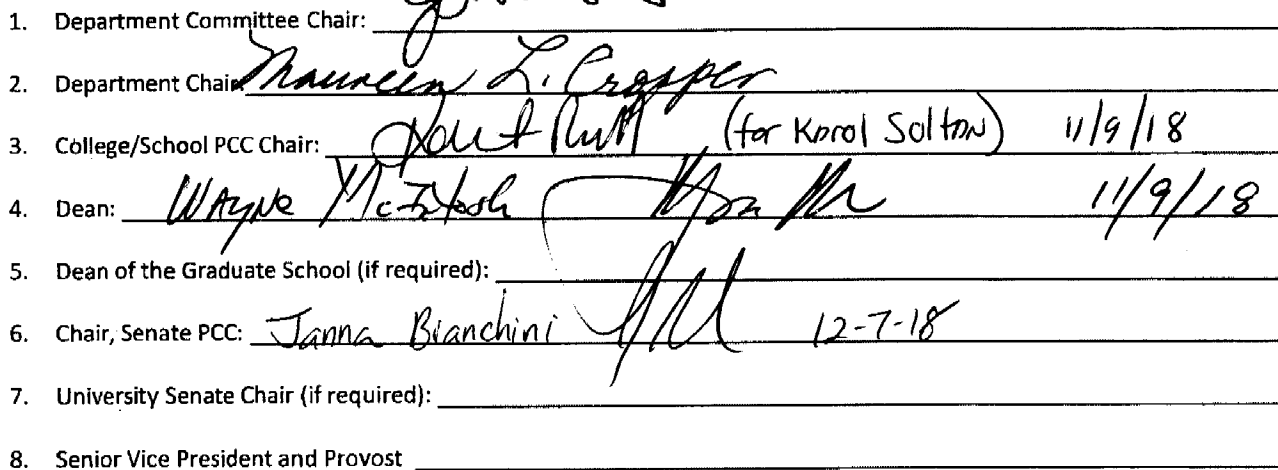 1. Department Committee Chair:
2. Department Chair Maureen L. Cropper
3. College/School PCC Chair: (for Karol Soltan) 11/9/18
4. Dean: Wayne McIntosh 11/9/18
5. Dean of the Graduate School (if required):
6. Chair, Senate PCC: Janna Bianchini 12-7-18
7. University Senate Chair (if required):
8. Senior Vice President and Provost